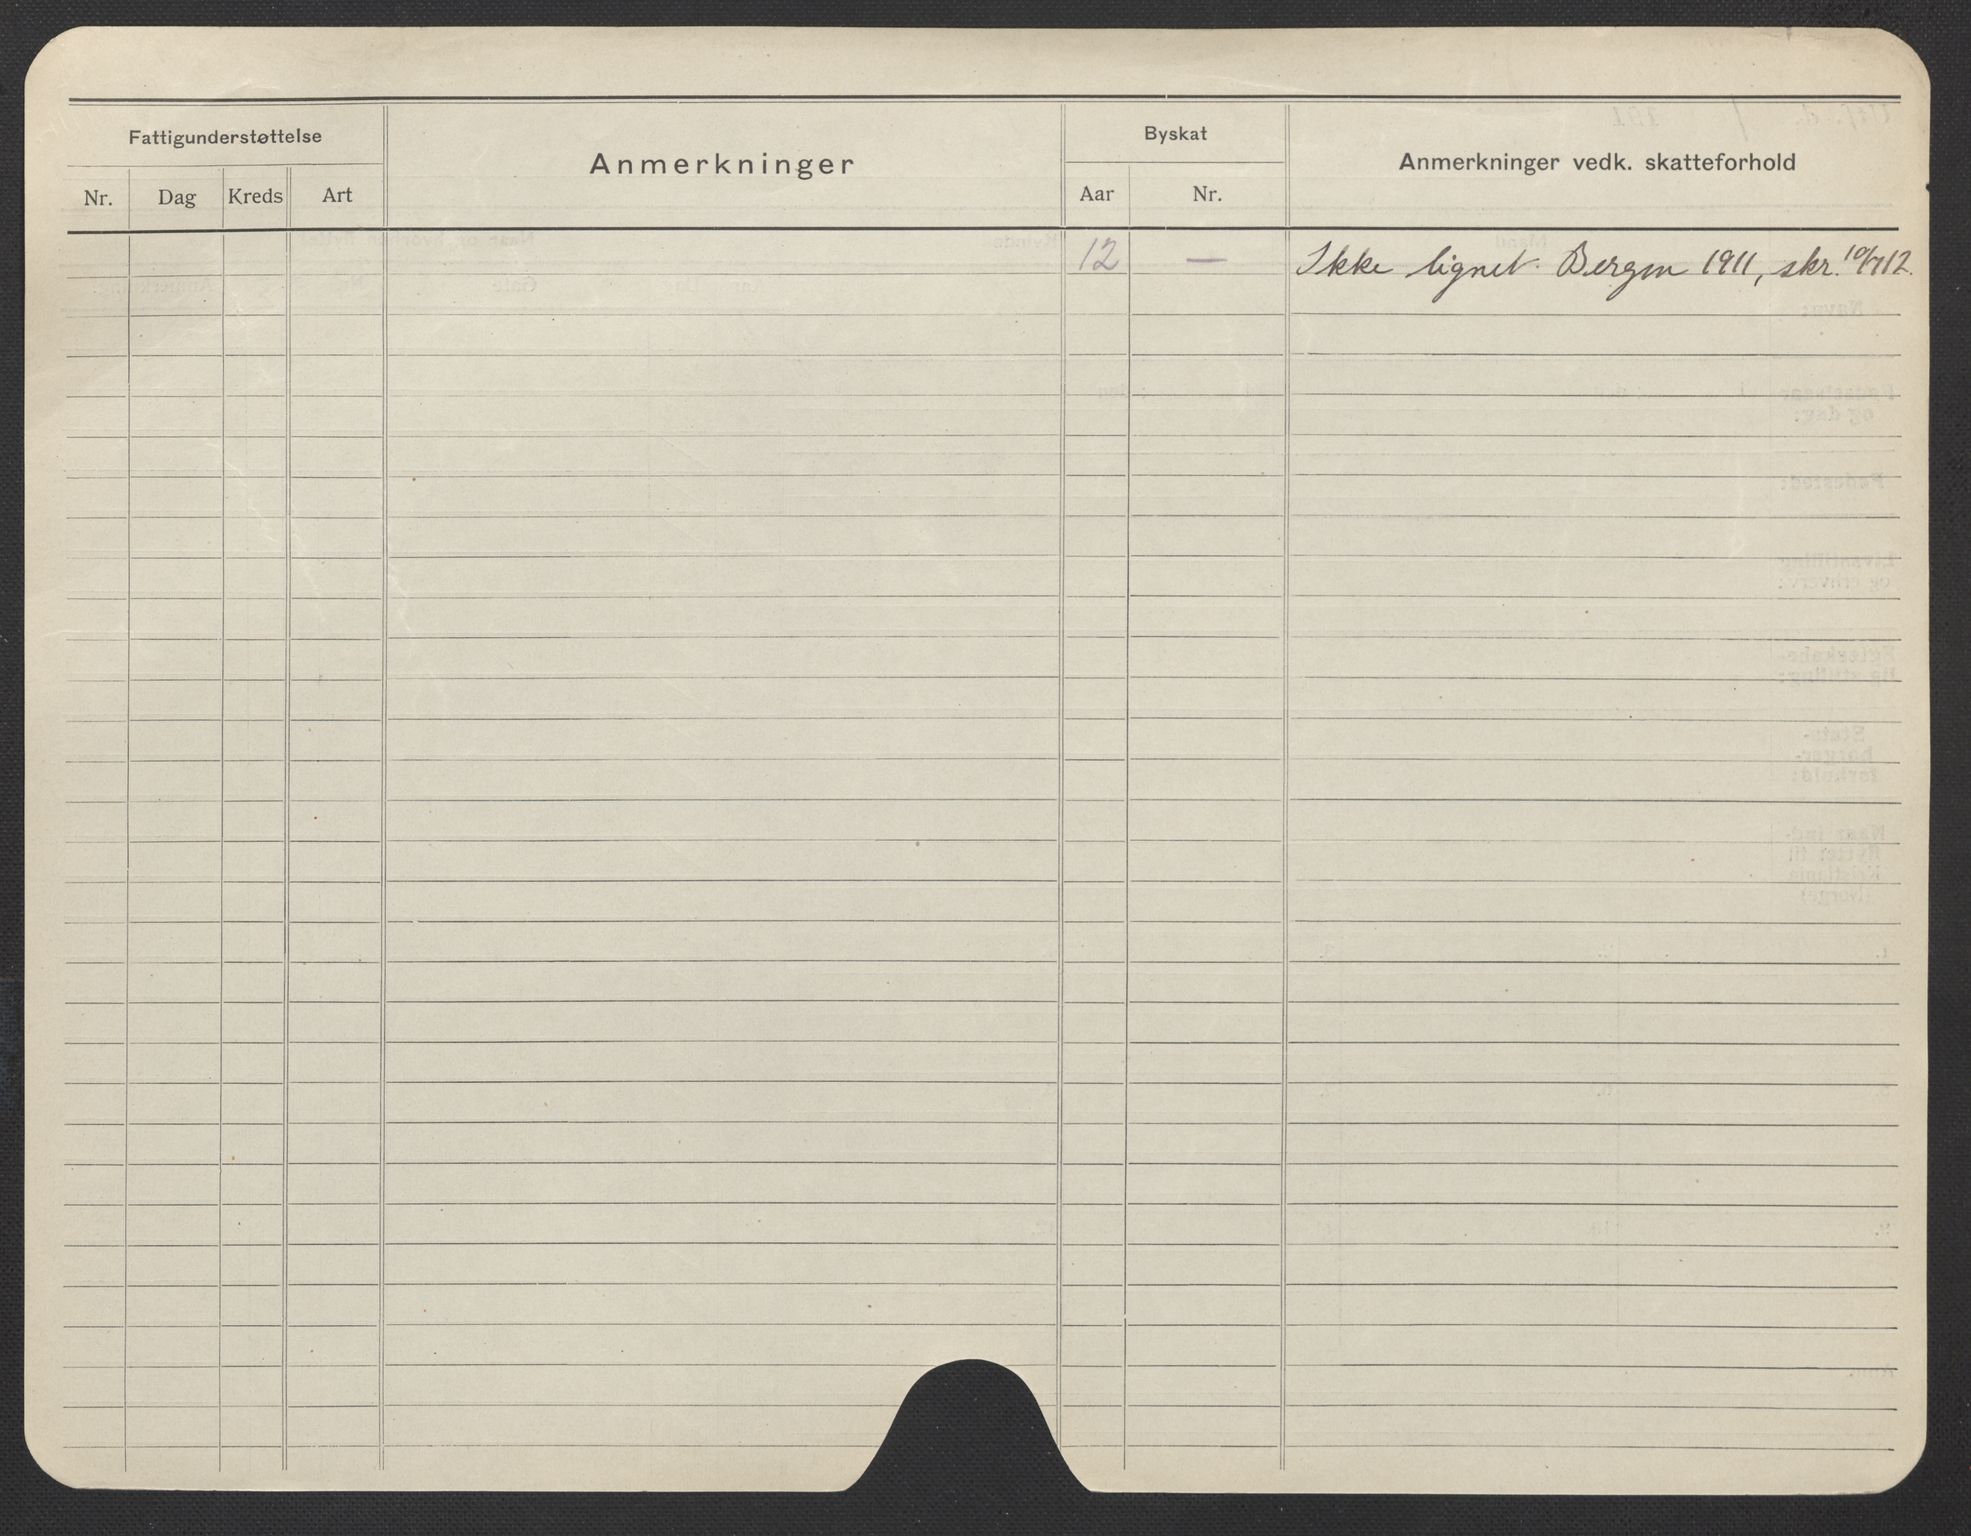 Fattigunderstøttelse
Anmerkninger
Byskat
Anmerkninger vedk. skatteforhold
Nr. Dag Kreds Art
Aar Nr.
12 — Ikke lignet Bergen 1911, skr. 10/7 12.